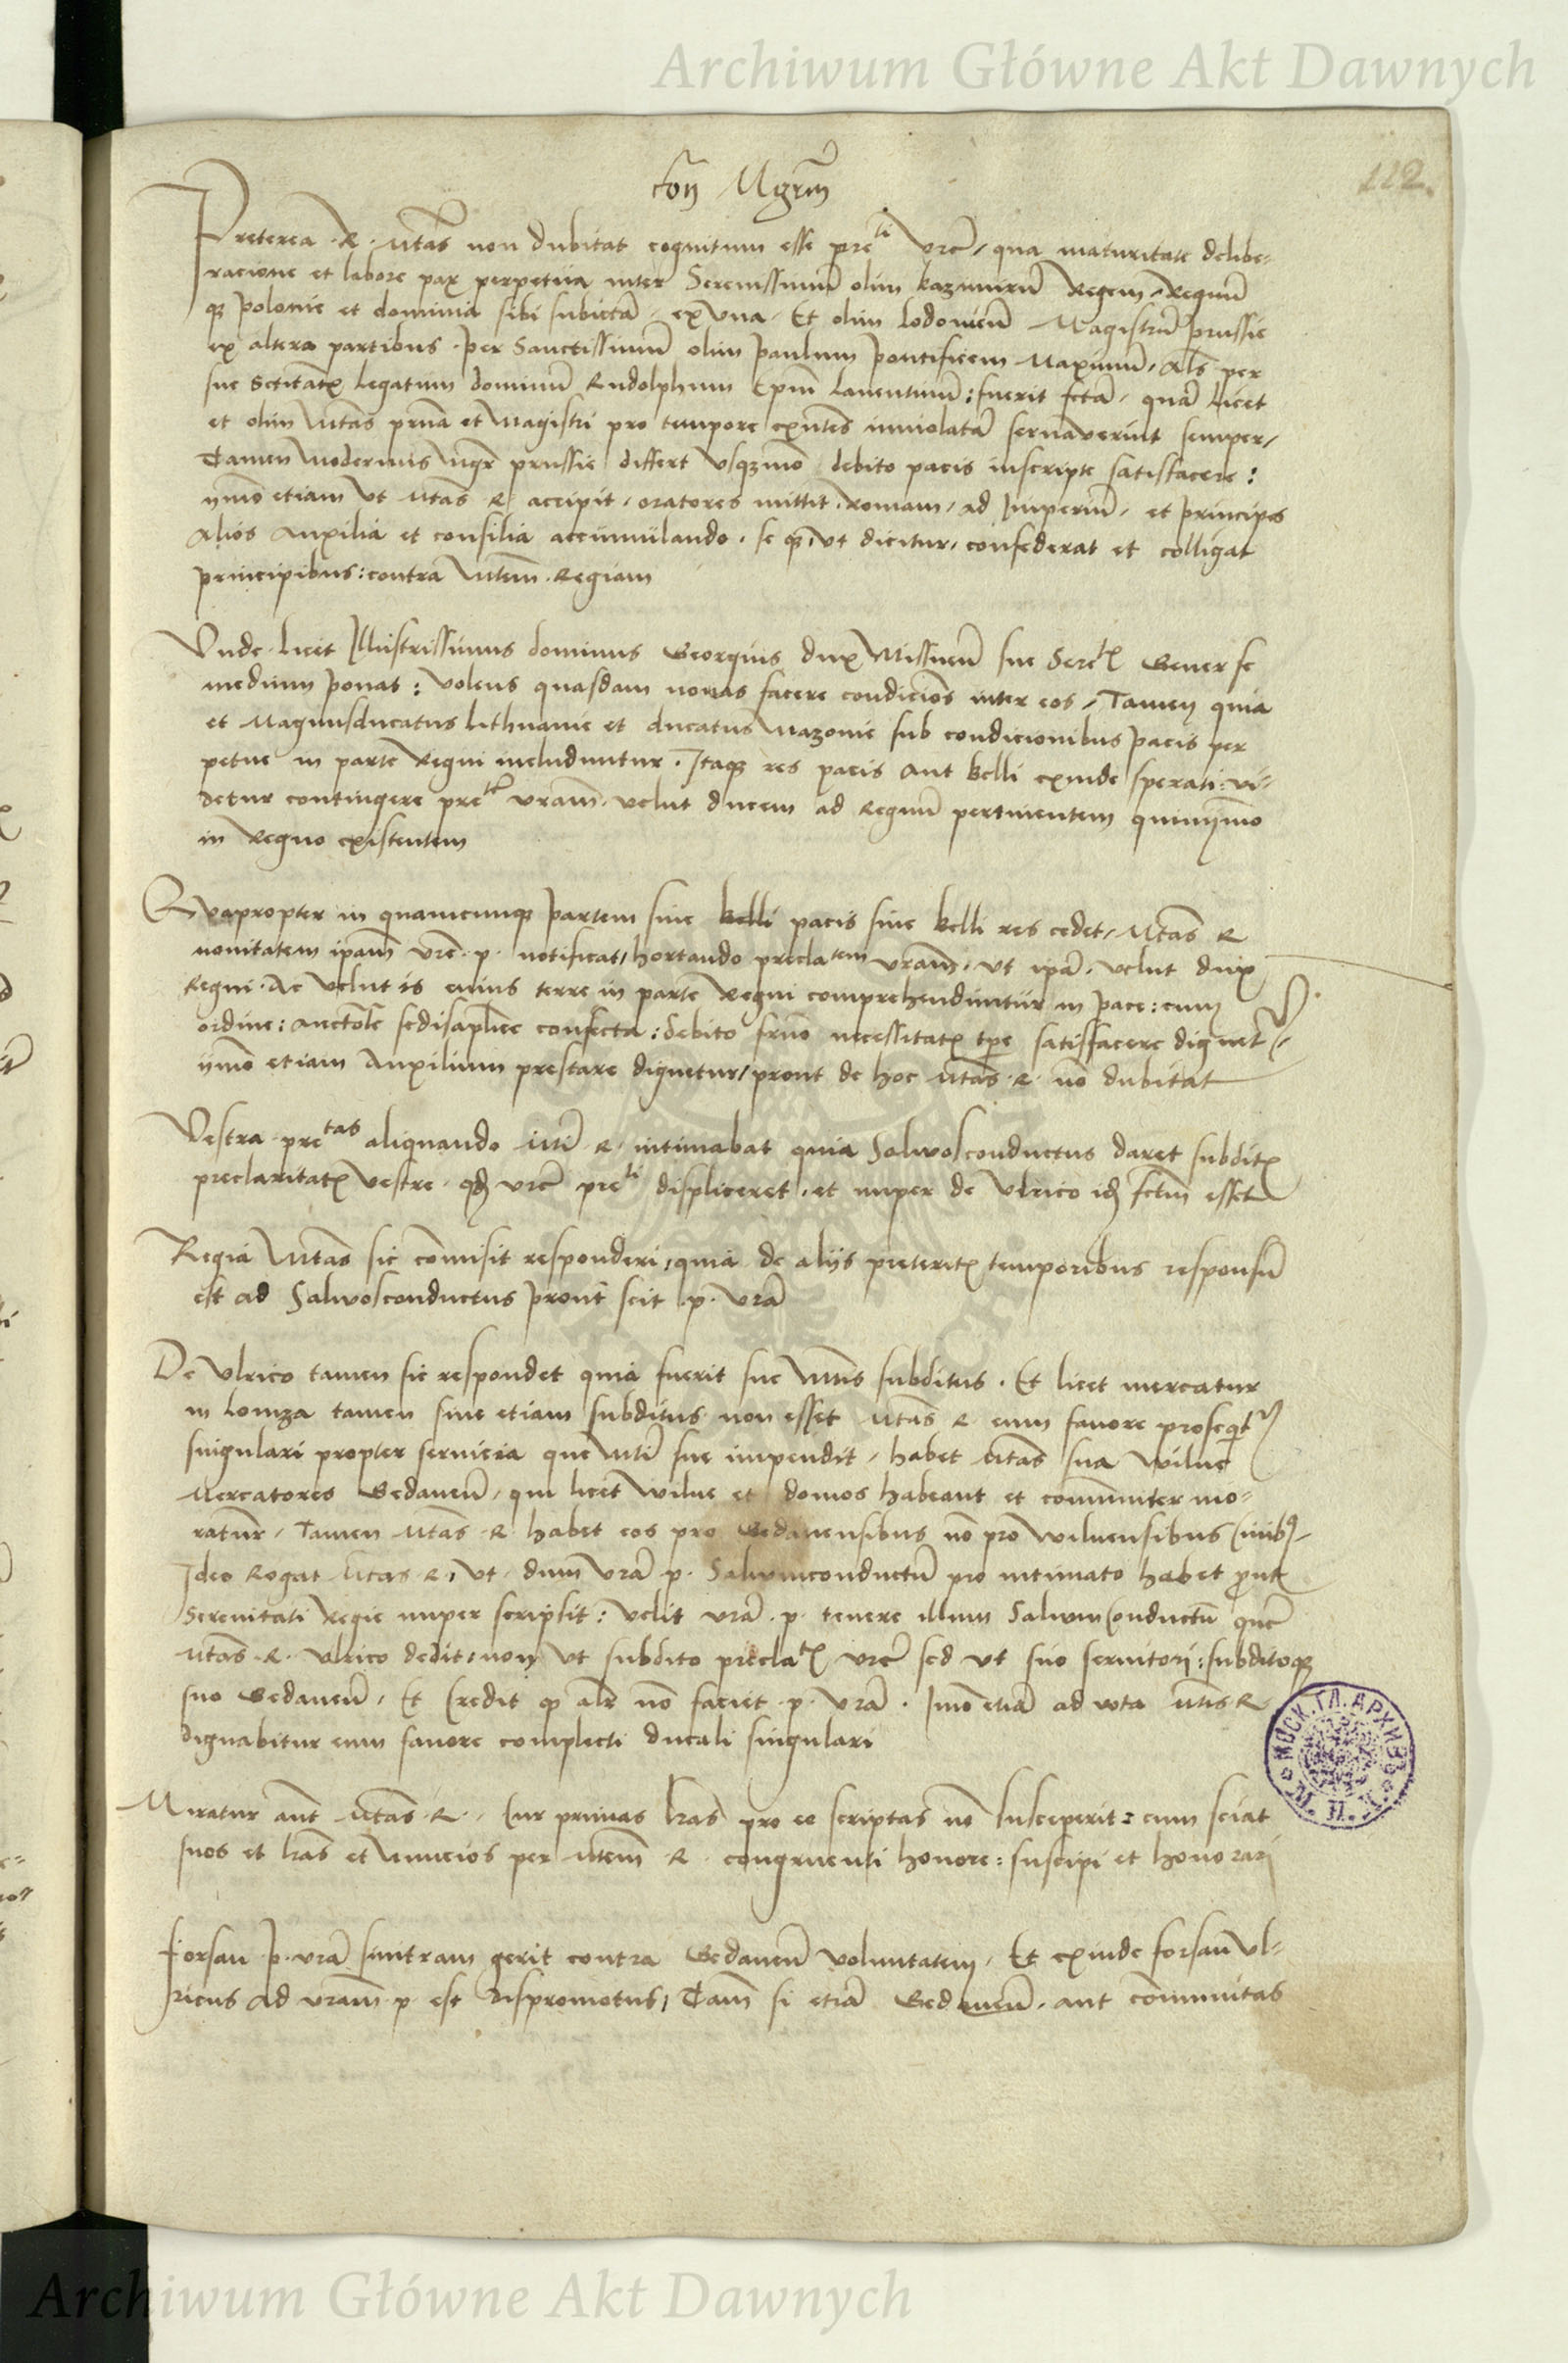 Archiwum Główne Akt Dawnych
112.
Con Mgrm̃
Preterea R. Mtas non dubitat cognitum esse preᵗⁱ vrẽ, qua maturitate delibe-
racione et labore pax perpetua inter Serenissimũ olim kazimirũ Regem, Regnũ
qz polonie et dominia sibi subiecta, ex vna. Et olim lodovicũ Magistrũ prussie
ex altera partibus. per Sanctissimũ olim paulum pontificem Maximũ, Als per
sue Sctitatis legatum dominũ Rudolphum Epm̃ lauentinũ: fuerit fcta, quã licet
et olim Mtas prima et Magistri pro tempore exñtes inuiolatã seruauerint semper,
Tamen modernus Mgr̃ prussie differt vsqzmõ debito pacis inscripte satisfacere:
ymõ etiam vt Mtas R. accipit, oratores mittit, Romam, ad Imperiũ, et principes
Alios Auxilia et consilia accumulando, se qz, vt dicitur, confederat et colligat
principibus: contra Mtem̃ Regiam
Vnde licet Illustrissimus dominus Georgius dux Missneñ sue Sereᵗⁱˢ Gener se
medium ponat: volens quasdam nouas facere condiciões inter eos, Tamen quia
et Magnusducatus lithuanie et ducatus Mazouie sub condicionibus pacis per
petue in parte Regni includuntur. Itaqz res pacis aut belli exinde sperati: vi-
detur contingere preᵗᵉᵐ vram̃, velut ducem ad Regnũ pertinentem quinymmo
in Regno existentem
Quapropter in quamcunqz partem siue belli pacis siue belli res cedet, Mtas R
nouitatem ipam̃ vrẽ p. notificat, hortando preclaᵗᵉᵐ vram̃, vt ipã, velut dux
Regni. Ac velut is cuius terre in parte Regni comprehenduntur in pace: cum
ordine: auctotẽ sedisaplice confecta: debito suo necessitatis tpe satisfacere dignet
ymõ etiam Auxilium prestare dignetur, prout de hoc Mtas R. nõ dubitat
Vestra preᵗᵃˢ aliquando Mti R. intimabat quia Saluosconductus daret subditis
preclaritatis vestre, qd vrẽ preᵗⁱ displiceret, et nuper de Vlrico id fctm̃ esset
Regia Mtas sic commisit responderi, quia de aliis preteritis temporibus responsũ
est ad Saluosconductus prout scit p. vrã
De Vlrico tamen sic respondet quia fuerit sue Mtis subditus. Et licet mercatur
in lomza tamen siue etiam subditus non esset Mtas R. eum fauore proseqit
singulari propter seruicia que Mti sue impendit, habet Mtas sua Wilne
Mercatores Gedaneñ, qui licet Wilne et domos habeant et communiter mo-
ratur, Tamen Mtas R. habet eos pro Gedanensibus nõ pro Wilnensibus ciuibᵍ,
Ideo Rogat Mtas R, vt, dum vrã p. Saluumconductũ pro intimato habet prout
Serenitati Regie nuper scripsit: velit vrã p. tenere illum Saluumconductũ quẽ
Mtas R. Vlrico dedit, non vt subdito preclaᵗⁱˢ vrẽ sed vt suo seruitori: subditoqz
suo Gedaneñ, Et Credit qz alr̃ nõ faciet p. vrã. Imõ etiã ad vota Mtis R
dignabitur eum fauore complecti ducali singulari
Miratur aũt Mtas R., Cur primas lras pro eo scriptas nõ susceperit: cum sciat
suos et lras et Nuncios per Mtem̃ R. congruenti honore: suscipi et honorari
Forsan p. vrã sinistram gerit contra Gedaneñ voluntatem, Et exinde forsan Vl-
ricus ad vram̃ p. est dispromotus, Tam̃ si etiã Gedaneñ, aut communitas
МОСК.ГЛ.АРХИВЪ
Archiwum Główne Akt Dawnych